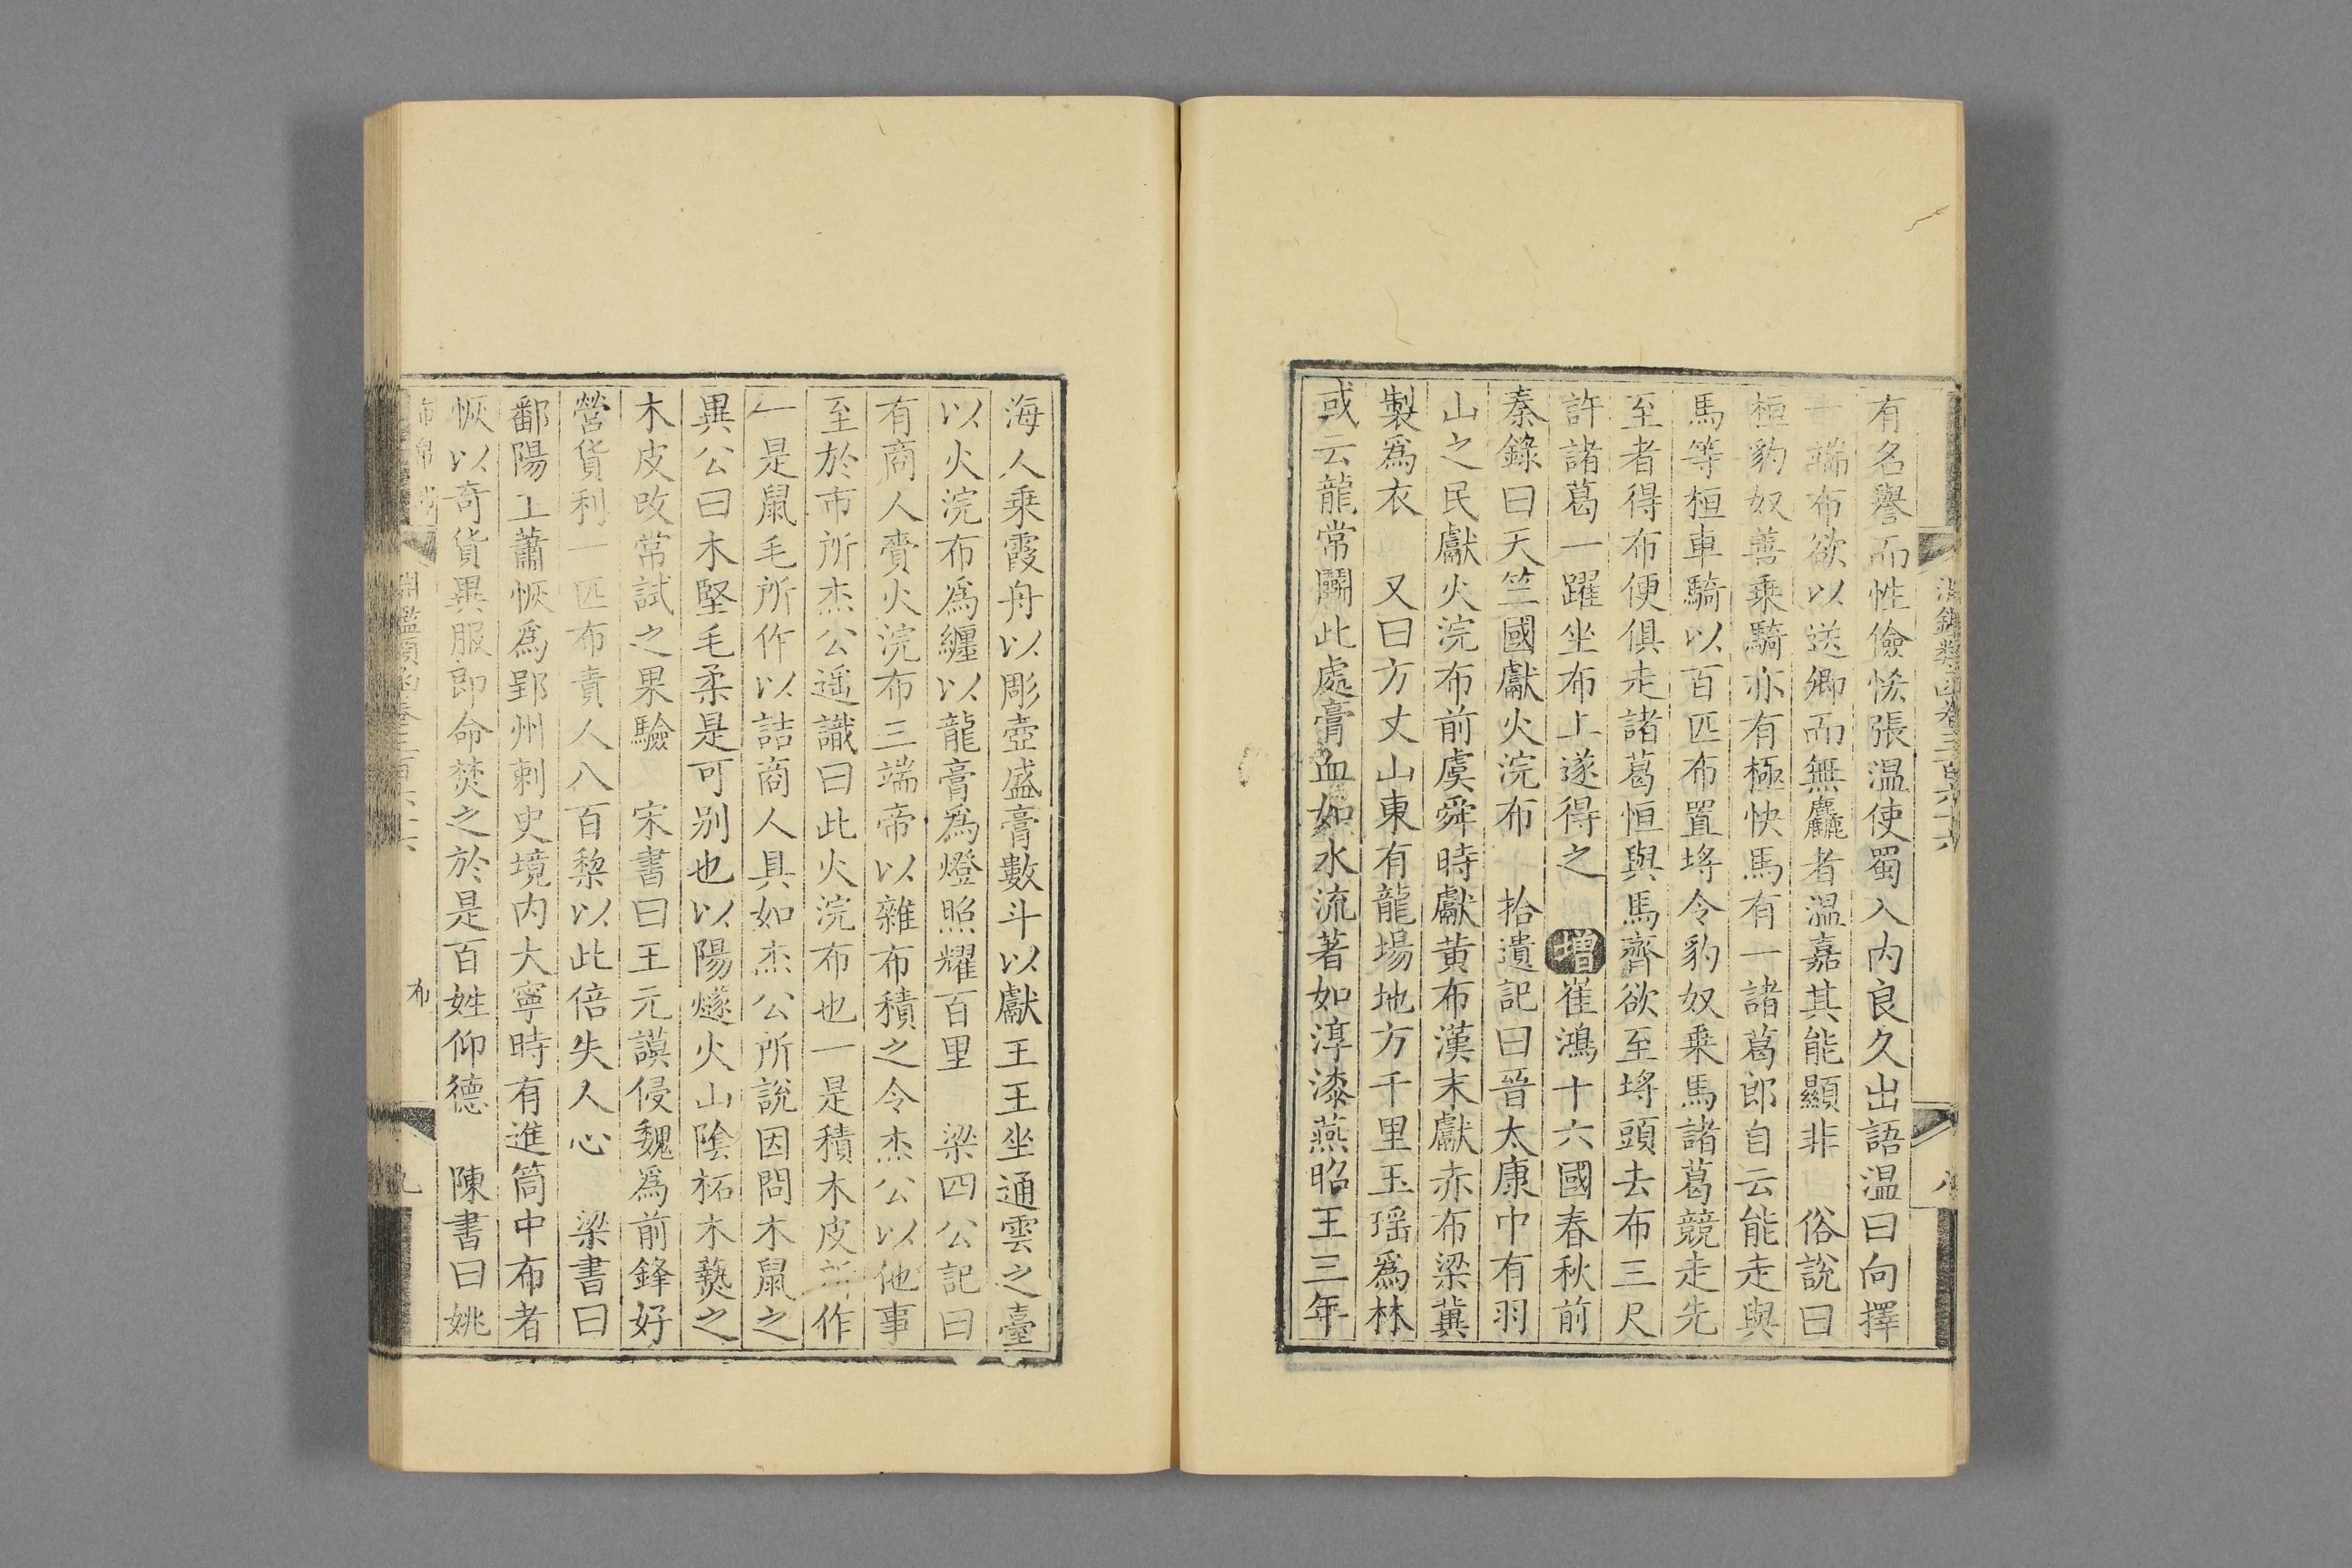 有名譽而性儉悋張温使蜀入内良久出語温曰向擇
一端布欲以送卿而無麤者温嘉其能顯非　俗說曰
桓豹奴善乗騎亦有極快馬有一諸葛郎自云能走與
馬等桓車騎以百匹布置埓令豹奴乗馬諸葛競走先
至者得布便俱走諸葛恒與馬齊欲至埓頭去布三尺
許諸葛一躍坐布上遂得之　增崔鴻十六國春秋前
秦錄曰天竺國獻火浣布　拾遺記曰晉太康中有羽
山之民獻火浣布前虞舜時獻黄布漢末獻赤布梁冀
製爲衣　又曰方丈山東有龍場地方千里玉瑶爲林
或云龍常鬭此處膏血如水流著如淳漆燕昭王三年
海人乗霞舟以彫壺盛膏數斗以獻王王坐通雲之臺
以火浣布爲纏以龍膏為燈照耀百里　梁四公記曰
有商人賫火浣布三端帝以雜布積之令杰公以他事
至於市所杰公遥識曰此火浣布也一是積木皮所作
一是鼠毛所作以詰商人具如杰公所說因問木鼠之
異公曰木堅毛柔是可别也以陽燧火山陰柘木爇之
木皮改常試之果驗　宋書曰王元謨侵魏爲前鋒好
營貨利一匹布責人八百棃以此倍失人心　梁書曰
鄱陽王蕭恢爲郢州剌史境内大寧時有進筒中布者
恢以奇貨異服即命焚之於是百姓仰德　陳書曰姚
布帛部
淵鑑類函卷三百六十六
布
九